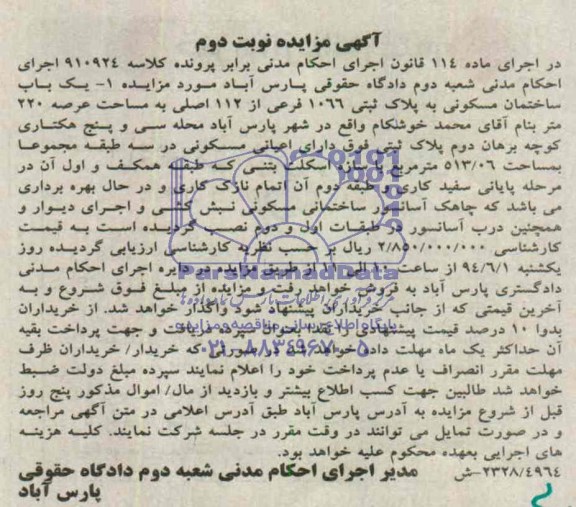 آگهی مزایده نوبت دوم
در اجرای ماده ١١٤ قانون اجرای احکام مدنی برابر پرونده کلاسه ٩١٠٩٢٤ اجرای
احکام مدنی شعبه دوم دادگاه حقوقی پارس آباد مورد مزایده ١- یک باب
ساختمان مسکونی به پلاک ثبتی ١٠٦٦ فرعی از ١١٢ اصلی به مساحت عرصه ٢٢٠
متر بنام آقای محمد خوشکام واقع در شهر پارس آباد محله سی و پنج هکتاری
کوچه برهان دوم پلاک ثبتی فوق دارای اعیانی مسکونی در سه طبقه مجموعا
بمساحت ٥١٣/٠٦ مترمربع با سازه اسکلت بتنی که طبقه همکف و اول آن در
مرحله پایانی سفید کاری و طبقه دوم آن اتمام نازک کاری و در حال بهره برداری
می باشد که چاهک آسانسور ساختمانی مسکونی نبش کشی و اجرای دیوار و
همچنین درب آسانسور در طبقات اول و دوم نصب گردیده است به قیمت
کارشناسی ٢/٨٥٠/٠٠٠/٠٠٠ ریال بر حسب نظریه کارشناسی ارزیابی گردیده روز
یکشنبه ٩٤/٦/١ از ساعت از طریق مزایده در دایره اجرای احکام مدنی
دادگستری پارس آباد به فروش خواهد رفت و مزایده از مبلغ فوق شروع و به
آخرین قیمتی که از جانب خریداران پیشنهاد شود واگذار خواهد شد. از خریداران
بدوا ١٠ درصد قیمت پیشنهادی نقدا بعنوان سپرده دریافت و جهت پرداخت بقیه
آن حداکثر یک ماه مهلت داده خواهد شد در صورتی که خریدار/ خریداران ظرف
مهلت مقرر انصراف یا عدم پرداخت خود را اعلام نمایند سپرده مبلغ دولت ضبط
خواهد شد طالبین جهت کسب اطلاع بیشتر و بازدید از مال/ اموال مذکور پنج روز
قبل از شروع مزایده به آدرس پارس آباد طبق آدرس اعلامی در متن آگهی مراجعه
و در صورت تمایل می توانند در وقت مقرر در جلسه شرکت نمایند. کلیه هزینه
های اجرایی بعهده محکوم علیه خواهد بود.
٢٣٢٨/٤٩٦٤-ش مدیر اجرای احکام مدنی شعبه دوم دادگاه حقوقی
پارس آباد
ParsNamadData
پایگاه اطلاع رسانی مناقصه و مزایده
٠٢١-٨٨٣٤٩٦٧٠-٥